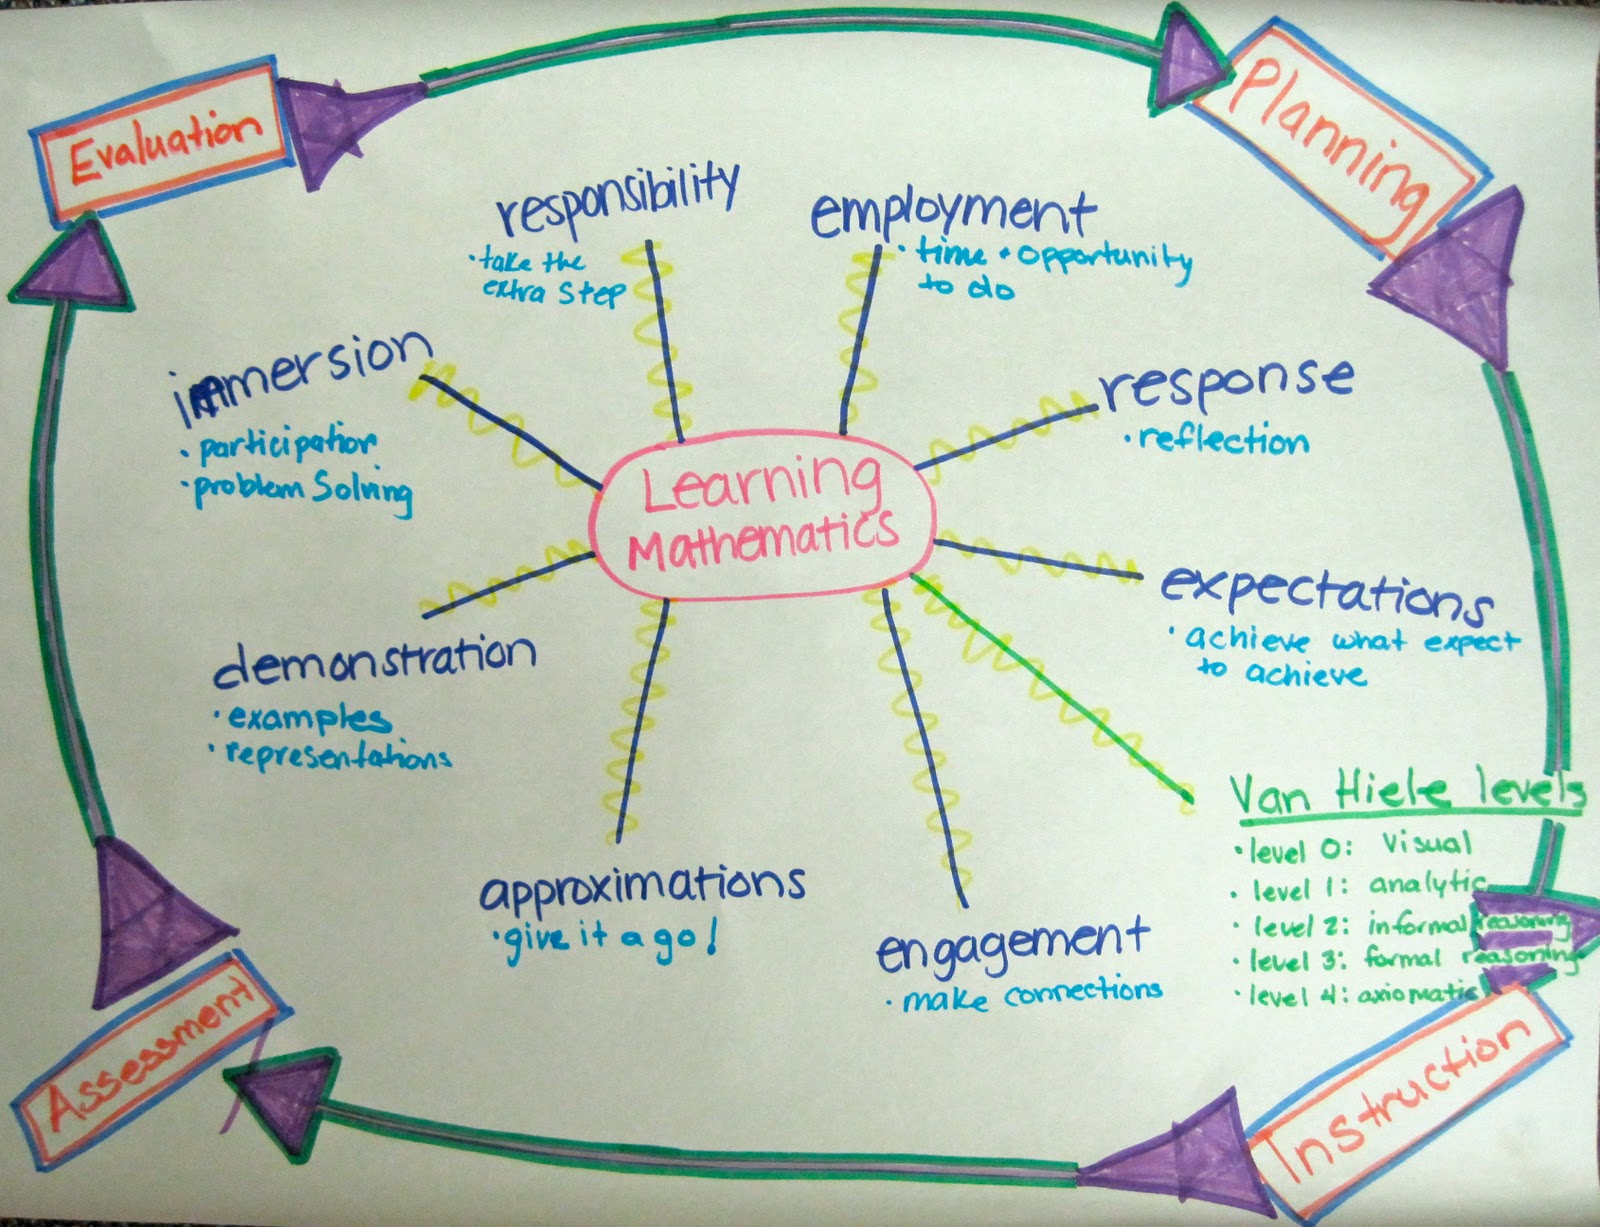 Evaluation
Planning
responsibility
· take the
extra step
employment
· time + opportunity
to do
immersion
· participation
· problem solving
response
· reflection
Learning
Mathematics
expectations
· achieve what expect
to achieve
demonstration
· examples
· representations
Van Hiele levels
· level 0: visual
· level 1: analytic
· level 2: informal reasoning
· level 3: formal reasoning
· level 4: axiomatic
approximations
· give it a go!
engagement
· make connections
Assessment
Instruction